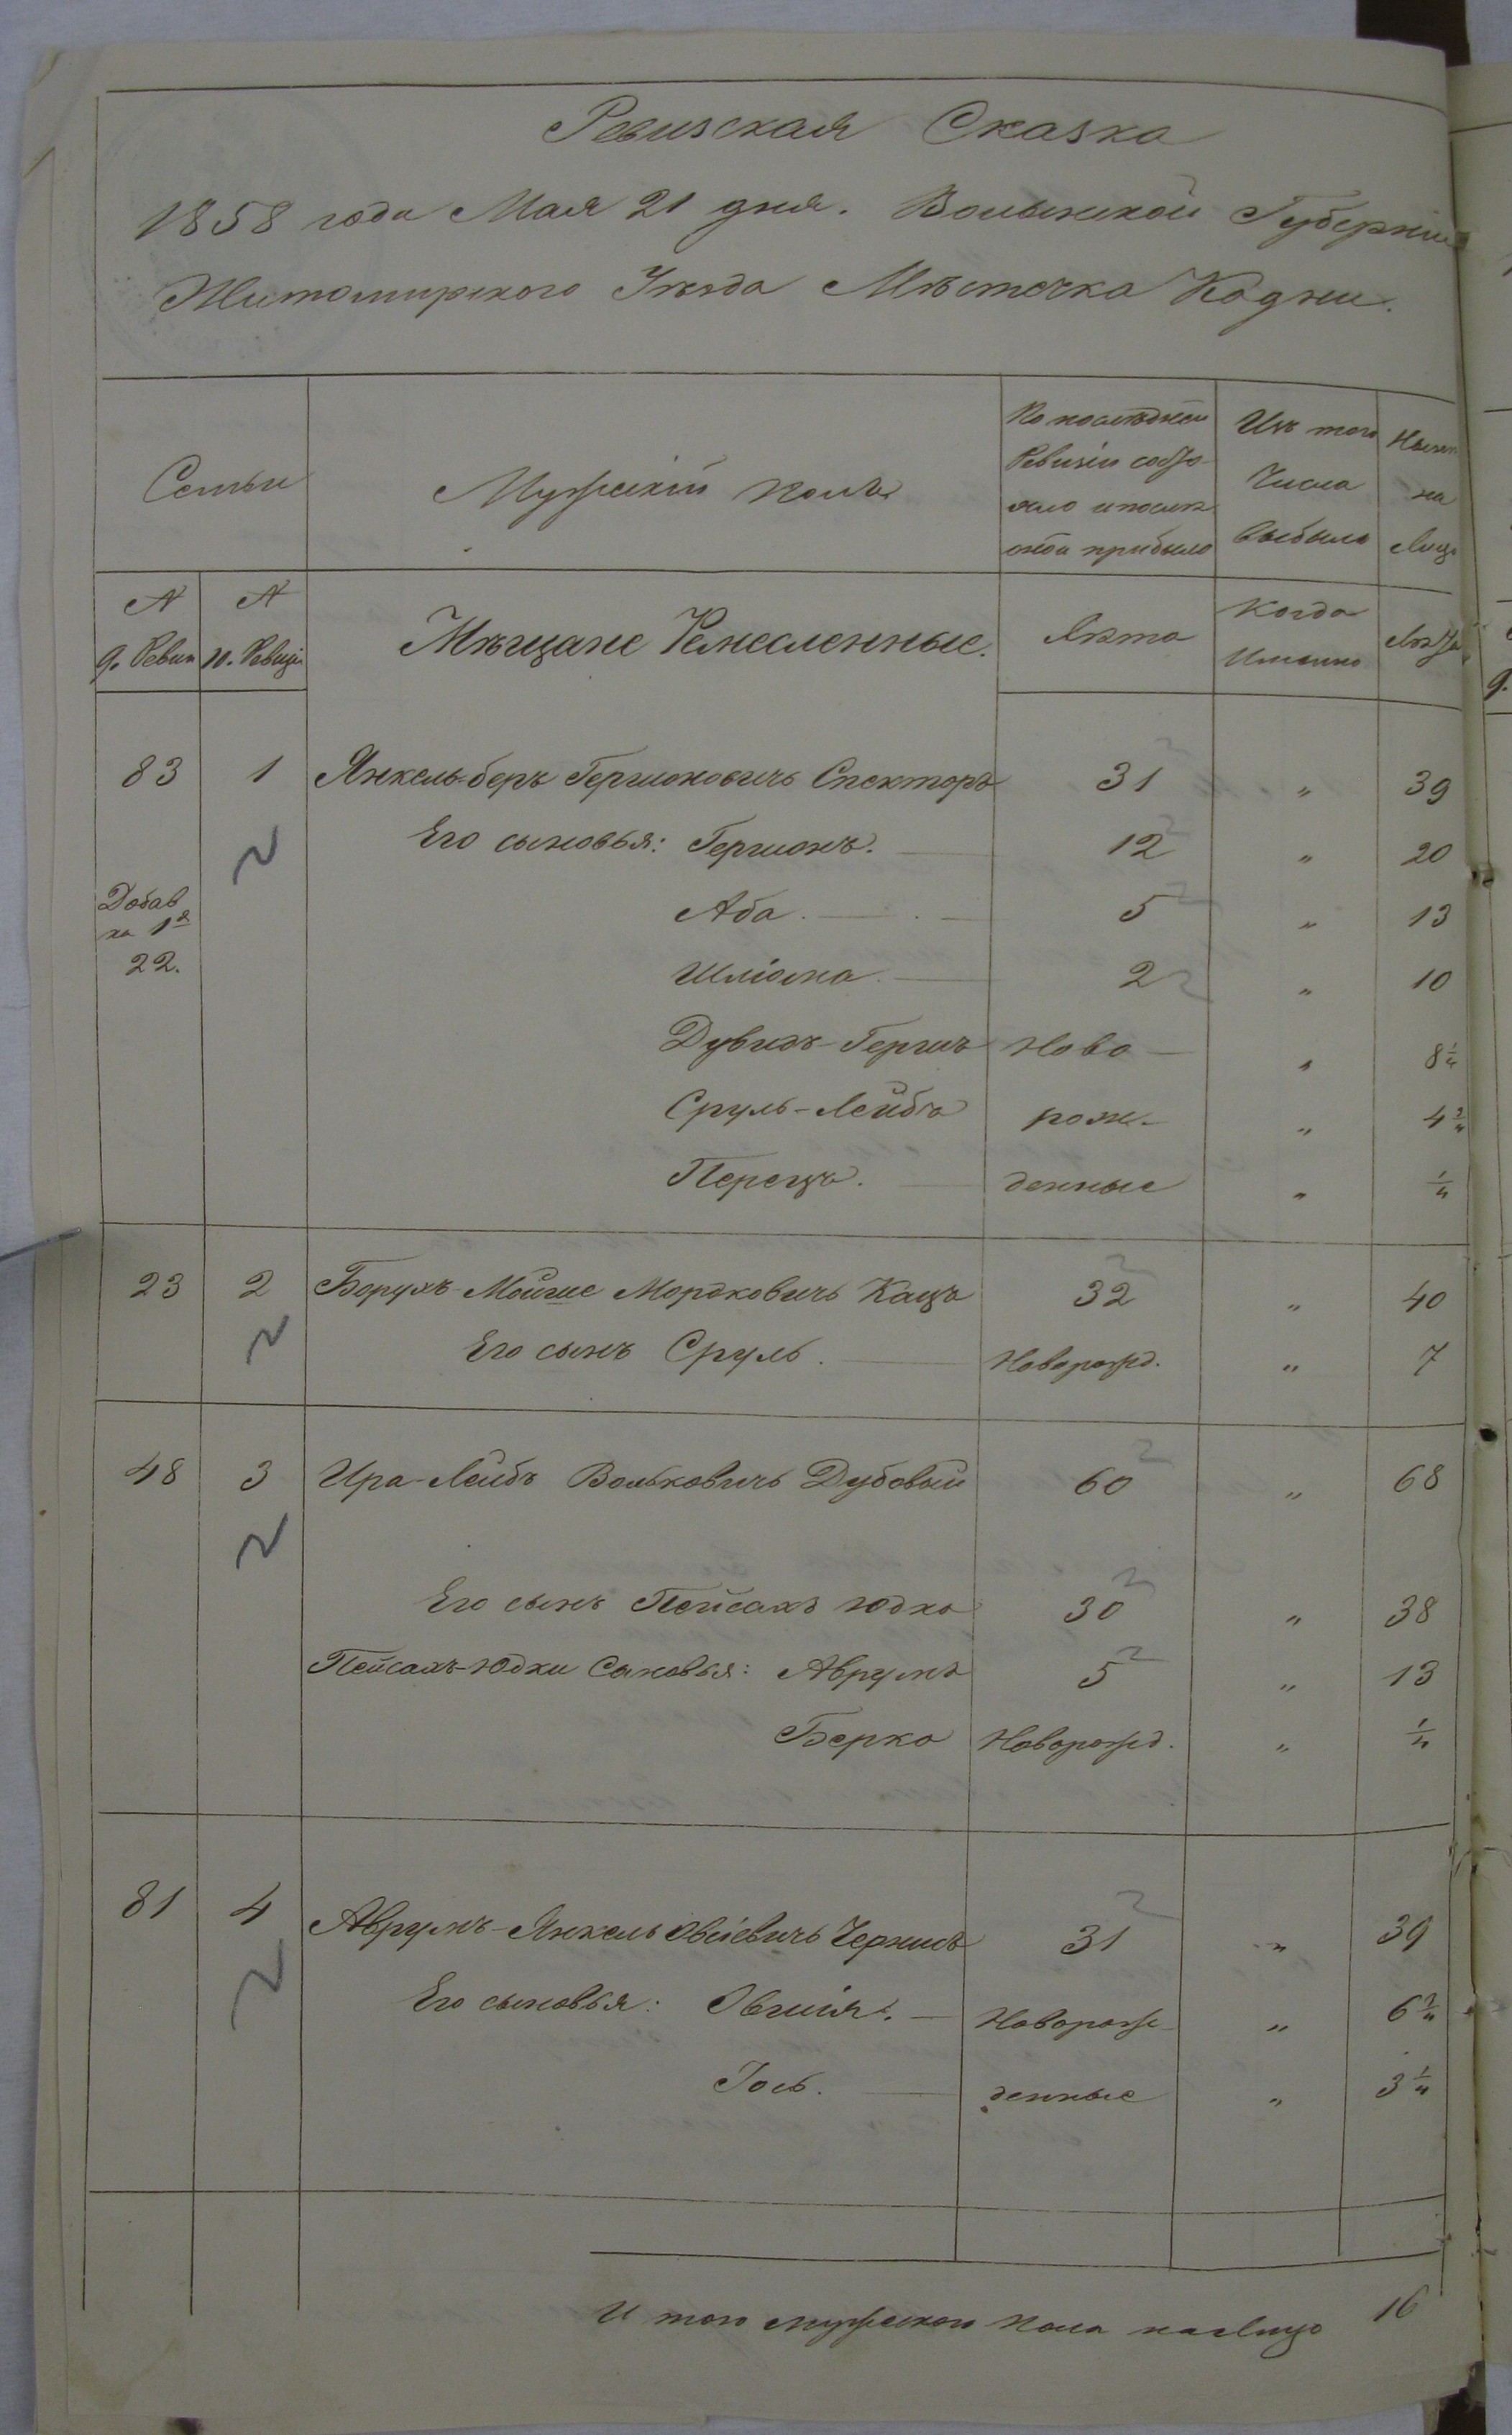 Ревизская Сказка
1858 года Мая 21 дня. Волынской Губерніи
Житомирского Уезда Мѣстечка Кодни.
Семьи
Мужескій полъ
По последней
Ревизіи состо-
яло и после
онай прибыло
Изъ того
Числа
выбыло
Ныне
на
Лицо
№
9. Ревиз
№
10. Ревизіи
Мѣщане Ремесленные.
Лѣта
Когда
Именно
Лѣта
83 1 Янкель-беръ Гершоновичъ Спекторъ 31 " 39
Его сыновья: Гершонъ. 12 " 20
Добав
на 1е
22.
Аба. 5 " 13
Шліома 2 " 10
Дувидъ-Гершъ Ново- " 8¼
Сруль-Лейба рож- " 4¾
Перецъ. денные " ¼
23 2 Борухъ-Мойше Мордковичъ Кацъ 32 " 40
Его сынъ Сруль. Новорожд. " 7
48 3 Ира-Лейбъ Вольковичъ Дубовый 60 " 68
Его сынъ Пейсахъ Юдка 30 " 38
Пейсахъ-Юдки Сыновья: Аврумъ 5 " 13
Берко Новорожд. " ¼
81 4 Аврумъ-Янкель Овшіевичъ Чернисъ 31 " 39
Его сыновья: Овшія. Новорож- " 6¾
Іось. денные " 3¼
И того мужеского пола налицо 16